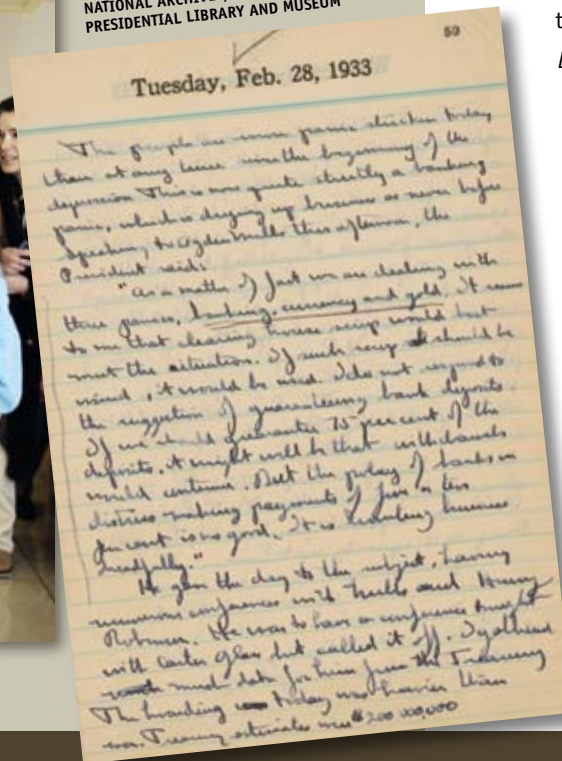 NATIONAL ARCHIVE
PRESIDENTIAL LIBRARY AND MUSEUM
59
Tuesday, Feb. 28, 1933
The people are more panic stricken today
than at any time since the beginning of the
depression This is now quite strictly a banking
panic, which is drying up business as never before
Speaking to Ogden Mills this afternoon, the
President said:
"As a matter of fact we are dealing with
three panics, banking, currency and gold. It seems
to me that clearing house scrip would best
meet the situation. If such scrip should be
issued, it would be used. I do not respond to
the suggestion of guaranteeing bank deposits.
If we should guarantee 75 per cent of the
deposits, it might well be that withdrawals
would continue. But the policy of banks in
distress making payments of five or ten
per cent is no good. It is hurting business
dreadfully."
He gave the day to the subject, having
numerous conferences with Mills and Henry
Robinson. He was to have a conference tonight
with Carter Glass but called it off. I gathered
much data for him from the Treasury
The hoarding today was heavier than
ever. Treasury estimates were $200 000,000